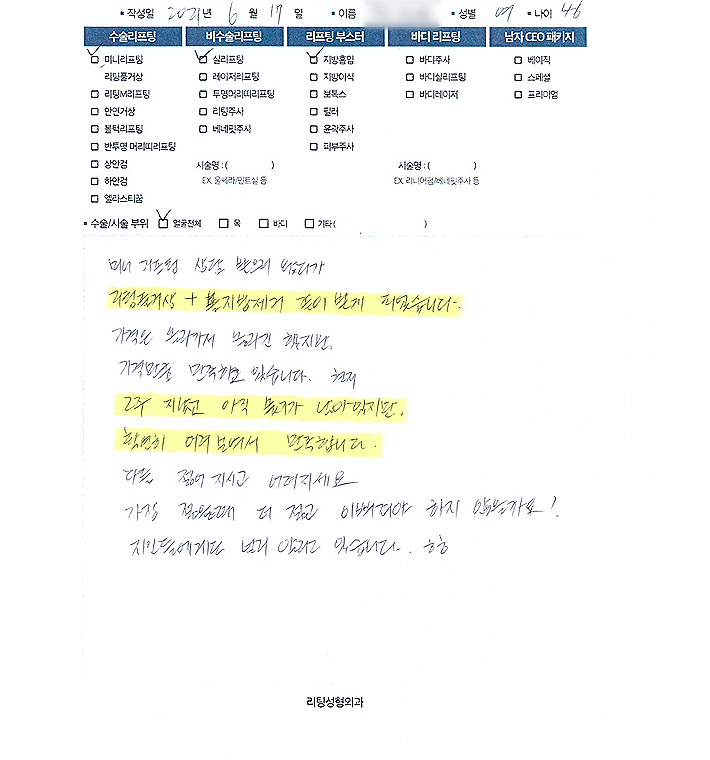 ▪ 작성일 2021년 6 월 17 일 ▪ 이름 ▪ 성별 여 ▪ 나이 46
수술리프팅 비수술리프팅 리프팅 부스터 바디 리프팅 남자 CEO 패키지
미니리프팅 실리프팅 지방흡입 바디주사 베이직
리팅풍거상 레이저리프팅 지방이식 바디실리프팅 스페셜
리팅M리프팅 투명머리띠리프팅 보톡스 바디레이저 프리미엄
안면거상 리팅주사 필러
볼턱리프팅 베네핏주사 윤곽주사
반투명 머리띠리프팅 피부주사
상안검 시술명 : ( ) 시술명 : ( )
하안검 EX. 울쎄라/민트실 등 EX. 리니어펌/베네핏주사 등
엘라스티꿈
▪ 수술/시술 부위 얼굴전체 목 바디 기타 ( )
미니 리프팅 상담 받으러 왔다가
리팅풍거상 + 볼지방제거 같이 받게 되었습니다.
가격은 올라가서 놀라긴 했지만,
가격만큼 만족하고 있습니다. 현재
2주 지났고 아직 붓기가 남아있지만,
확연히 어려 보여서 만족합니다.
다들 젊어 지시고 어려지세요
가장 젊을때 더 젊고 이뻐져야 하지 않을까요!
지인들에게도 널리 알리고 있습니다. ㅎㅎ
리팅성형외과